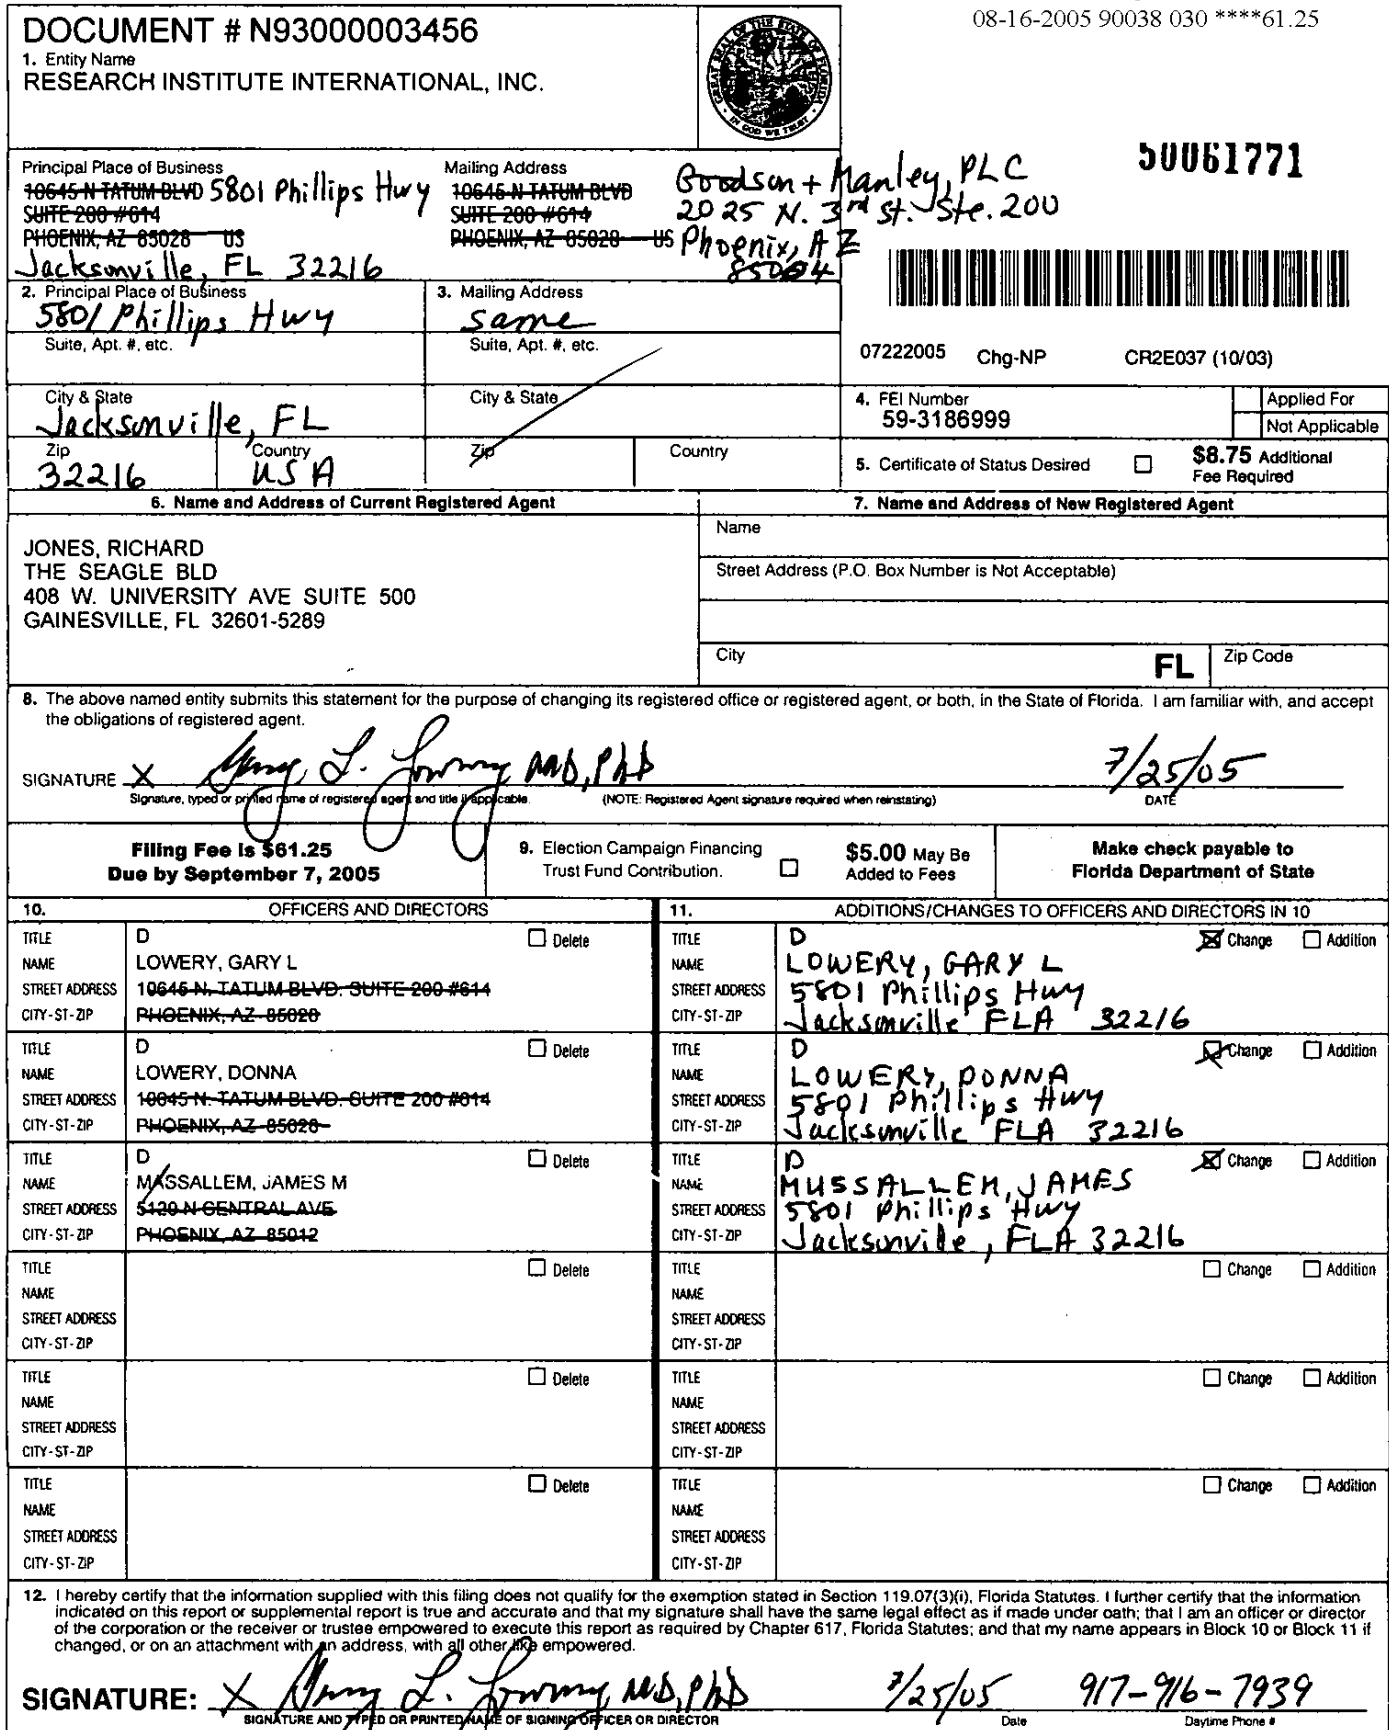 08-16-2005 90038 030 ****61.25
DOCUMENT # N93000003456
1. Entity Name
RESEARCH INSTITUTE INTERNATIONAL, INC.
GREAT SEAL OF THE STATE OF FLORIDA
IN GOD WE TRUST
50061771
Principal Place of Business
10645 N TATUM BLVD 5801 Phillips Hwy
SUITE 200 #614
PHOENIX, AZ 85028 US
Jacksonville, FL 32216
Mailing Address
10645 N TATUM BLVD
SUITE 200 #614
PHOENIX, AZ 85028 US
Goodson + Manley, PLC
2025 N. 3rd St. Ste. 200
Phoenix, AZ
85004
2. Principal Place of Business
5801 Phillips Hwy
Suite, Apt. #, etc.
City & State
Jacksonville, FL
Zip Country
32216 USA
3. Mailing Address
same
Suite, Apt. #, etc.
City & State
Zip Country
07222005 Chg-NP CR2E037 (10/03)
4. FEI Number
59-3186999
Applied For
Not Applicable
5. Certificate of Status Desired
$8.75 Additional
Fee Required
6. Name and Address of Current Registered Agent
JONES, RICHARD
THE SEAGLE BLD
408 W. UNIVERSITY AVE SUITE 500
GAINESVILLE, FL 32601-5289
7. Name and Address of New Registered Agent
Name
Street Address (P.O. Box Number is Not Acceptable)
City FL Zip Code
8. The above named entity submits this statement for the purpose of changing its registered office or registered agent, or both, in the State of Florida. I am familiar with, and accept
the obligations of registered agent.
SIGNATURE X Gary L. Lowery MD, PhD 7/25/05
Signature, typed or printed name of registered agent and title if applicable. (NOTE: Registered Agent signature required when reinstating) DATE
Filing Fee is $61.25
Due by September 7, 2005
9. Election Campaign Financing
Trust Fund Contribution.
$5.00 May Be
Added to Fees
Make check payable to
Florida Department of State
10. OFFICERS AND DIRECTORS
TITLE D Delete
NAME LOWERY, GARY L
STREET ADDRESS 10645 N. TATUM BLVD. SUITE 200 #614
CITY-ST-ZIP PHOENIX, AZ 85028
TITLE D Delete
NAME LOWERY, DONNA
STREET ADDRESS 10645 N. TATUM BLVD. SUITE 200 #614
CITY-ST-ZIP PHOENIX, AZ 85028
TITLE D Delete
NAME MASSALLEM, JAMES M
STREET ADDRESS 5120 N CENTRAL AVE
CITY-ST-ZIP PHOENIX, AZ 85012
TITLE Delete
NAME
STREET ADDRESS
CITY-ST-ZIP
TITLE Delete
NAME
STREET ADDRESS
CITY-ST-ZIP
TITLE Delete
NAME
STREET ADDRESS
CITY-ST-ZIP
11. ADDITIONS/CHANGES TO OFFICERS AND DIRECTORS IN 10
TITLE D Change Addition
NAME LOWERY, GARY L
STREET ADDRESS 5801 Phillips Hwy
CITY-ST-ZIP Jacksonville FLA 32216
TITLE D Change Addition
NAME LOWERY, DONNA
STREET ADDRESS 5801 Phillips Hwy
CITY-ST-ZIP Jacksonville FLA 32216
TITLE D Change Addition
NAME MUSSALLEM, JAMES
STREET ADDRESS 5801 Phillips Hwy
CITY-ST-ZIP Jacksonville, FLA 32216
TITLE Change Addition
NAME
STREET ADDRESS
CITY-ST-ZIP
TITLE Change Addition
NAME
STREET ADDRESS
CITY-ST-ZIP
TITLE Change Addition
NAME
STREET ADDRESS
CITY-ST-ZIP
12. I hereby certify that the information supplied with this filing does not qualify for the exemption stated in Section 119.07(3)(i), Florida Statutes. I further certify that the information
indicated on this report or supplemental report is true and accurate and that my signature shall have the same legal effect as if made under oath; that I am an officer or director
of the corporation or the receiver or trustee empowered to execute this report as required by Chapter 617, Florida Statutes; and that my name appears in Block 10 or Block 11 if
changed, or on an attachment with an address, with all other like empowered.
SIGNATURE: X Gary L. Lowery, MD, PhD 7/25/05 917-916-7939
SIGNATURE AND TYPED OR PRINTED NAME OF SIGNING OFFICER OR DIRECTOR Date Daytime Phone #